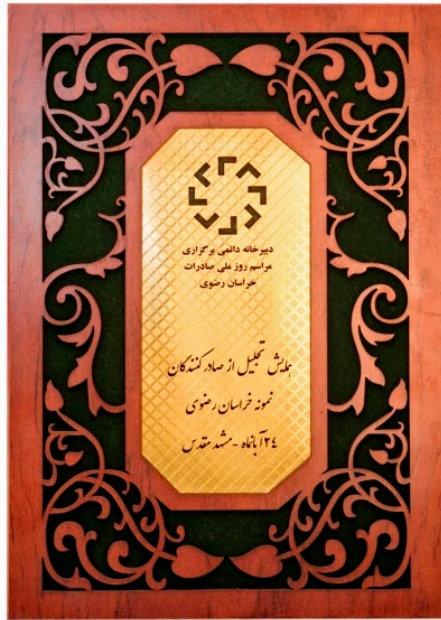 دبیرخانه دائمی برگزاری
مراسم روز ملی صادرات
خراسان رضوی
همایش تجلیل از صادرکنندگان
نمونه خراسان رضوی
۲٤ آبانماه - مشهد مقدس